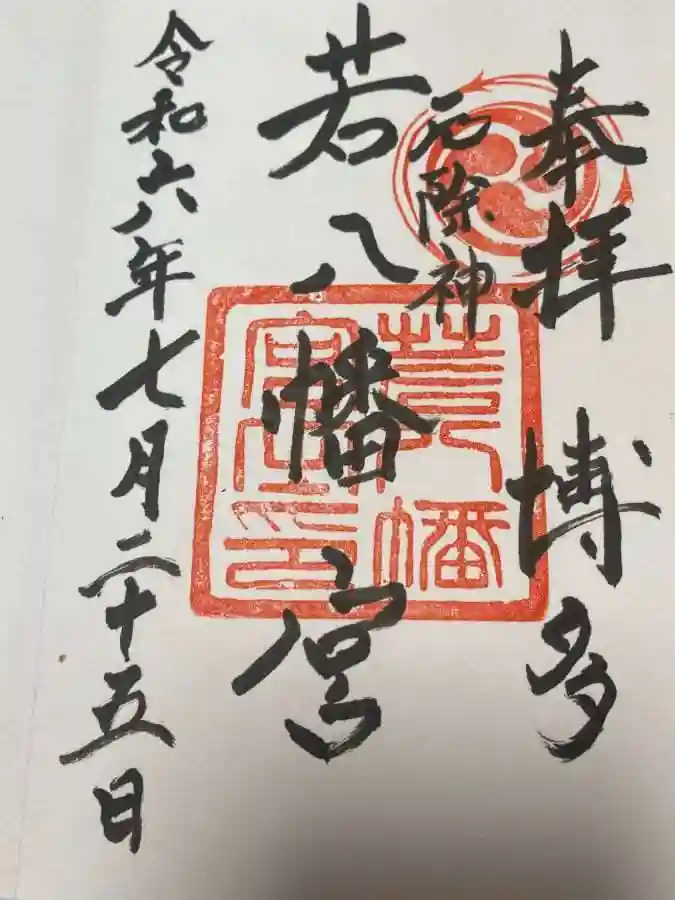 奉拝 博多
厄除神
若八幡宮
令和六年七月二十五日
若八幡
宮之印